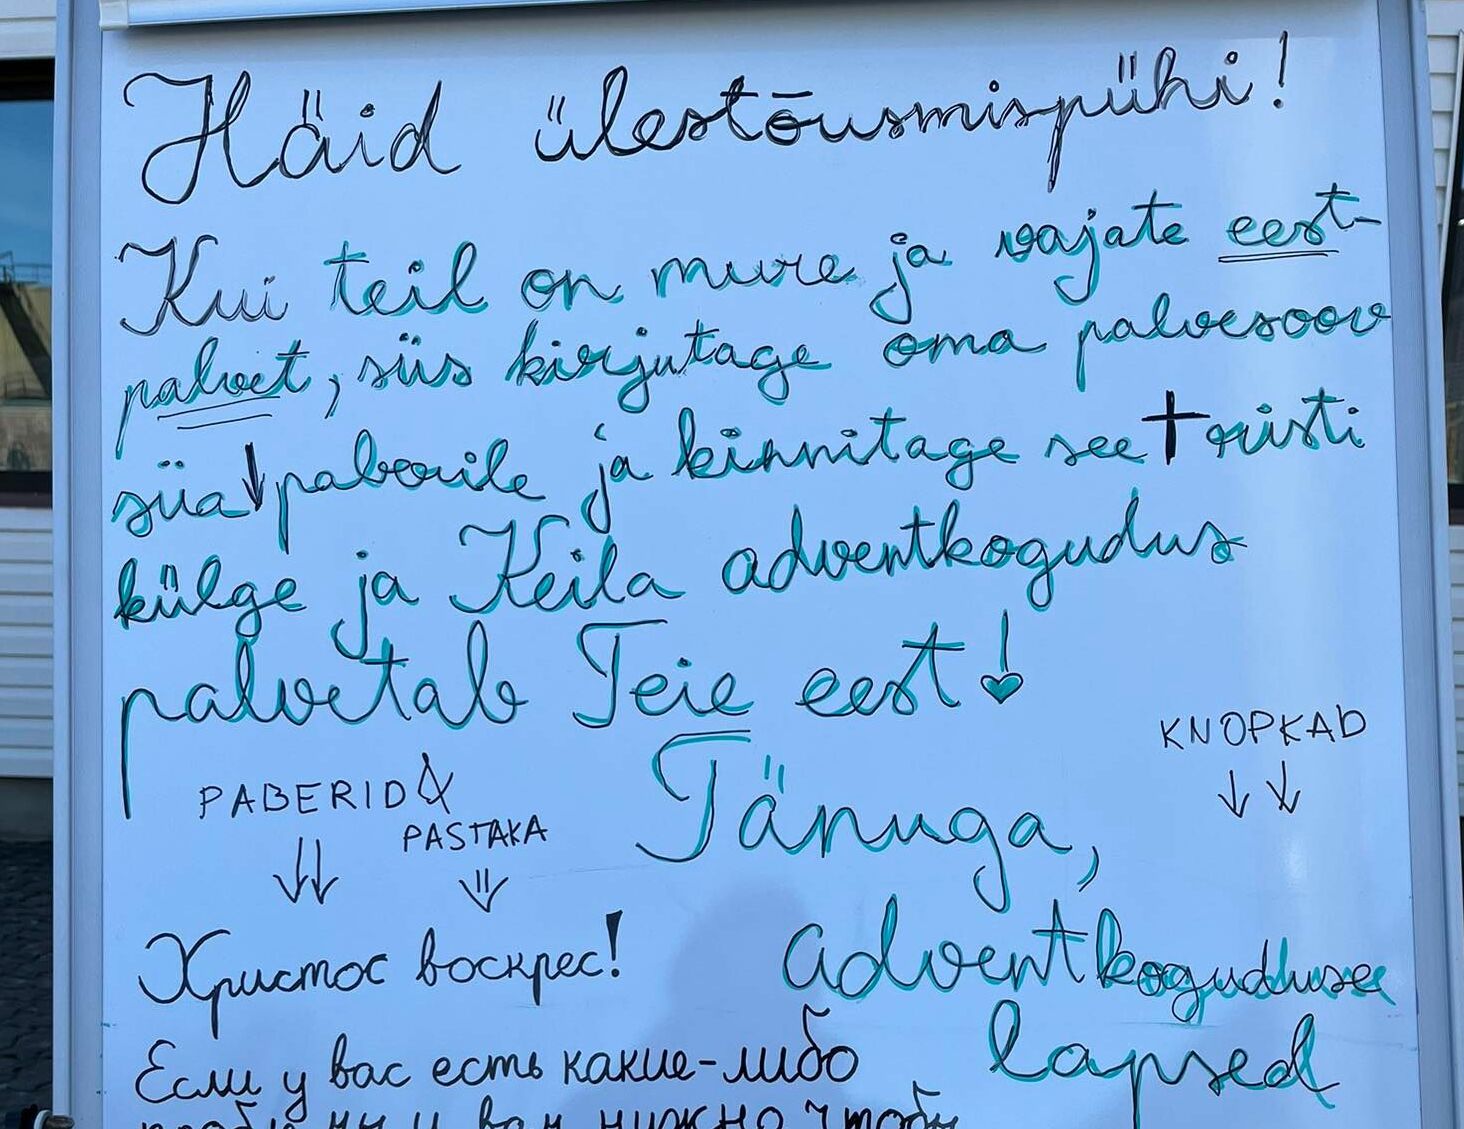 Häid ülestõusmispühi!
Kui teil on mure ja vajate eest-
palvet, siis kirjutage oma palvesoov
siia ↓ paberile ja kinnitage see † risti
külge ja Keila adventkogudus
palvetab Teie eest!
KNOPKAD
↓ ↓
PABERID &
PASTAKA
↓ ↓ ↓
Tänuga,
adventkoguduse
lapsed
Христос воскрес!
Если у вас есть какие-либо
проблемы и вам нужно чтобы